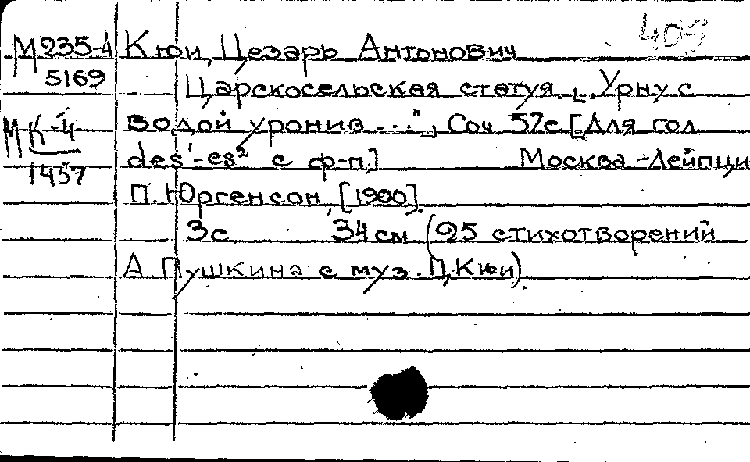 М235-4 Кюи, Цезарь Антонович 409
5169 Царскосельская статуя. „Урну с
МК-4 водой уронив...", Соч 57с [Для гол
1457 des'-es² с ф-п.] Москва-Лейпци
П. Юргенсон, [1900].
3с 34 см (25 стихотворений
А Пушкина с муз. Ц.Кюи).